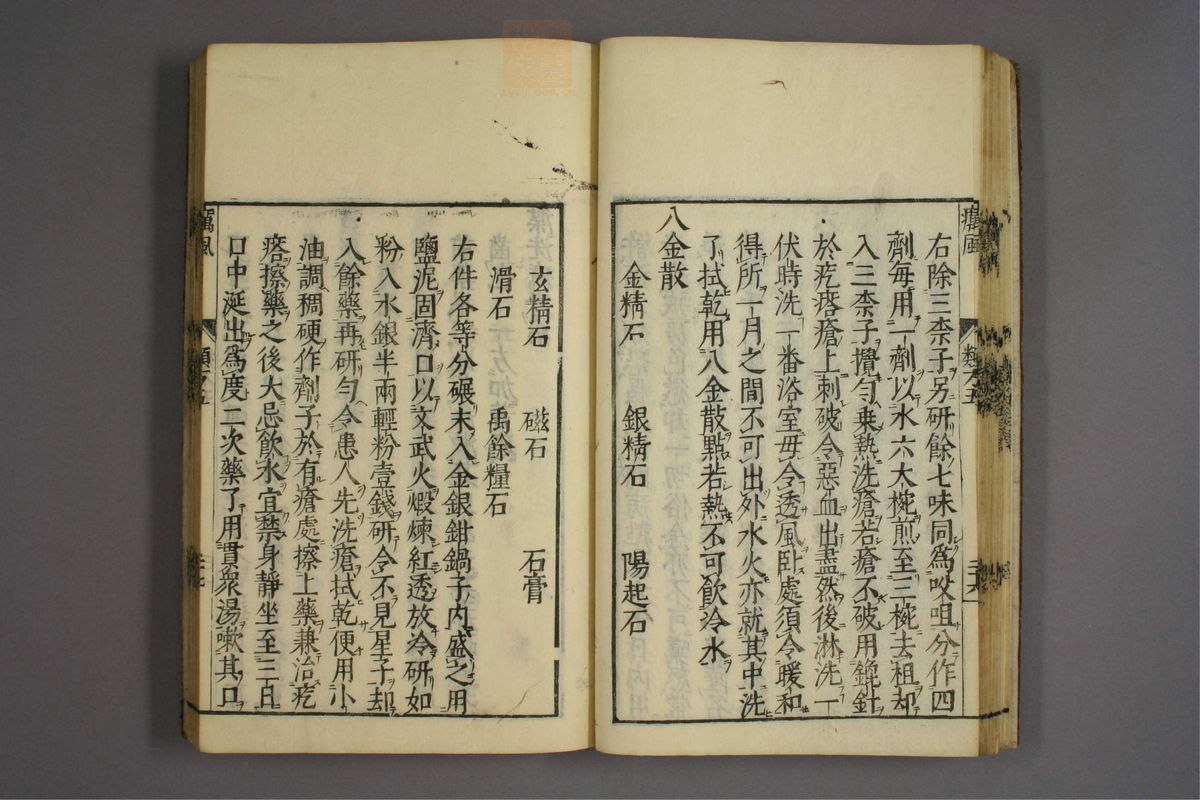 癘風
類卷五
右除三柰子另研餘七味同爲㕮咀分作四
劑每用一劑以水六大椀煎至三椀去柤却
入三柰子攪勻乗熱洗瘡若瘡不破用鈹針
於疙瘩瘡上刺破令惡血出盡然後淋洗一
伏時洗一番浴室毋令透風卧處須令暖和
得所一月之間不可出外水火亦就其中洗
了拭乾用八金散點若熱不可飲冷水
八金散
金精石 銀精石 陽起石
玄精石 磁石 石膏
滑石 禹餘糧石
右件各等分碾末入金銀鉗鍋子内盛之用
鹽泥固濟口以文武火煅煉紅透放冷研如
粉入水銀半兩輕粉壹錢研令不見星子却
入餘藥再研勻令患人先洗瘡拭乾便用小
油調稠硬作劑子於有瘡處擦上藥兼治疙
瘩擦藥之後大忌飲水宜禁身靜坐至三日
口中涎出爲度二次藥了用貫衆湯嗽其口
癘風